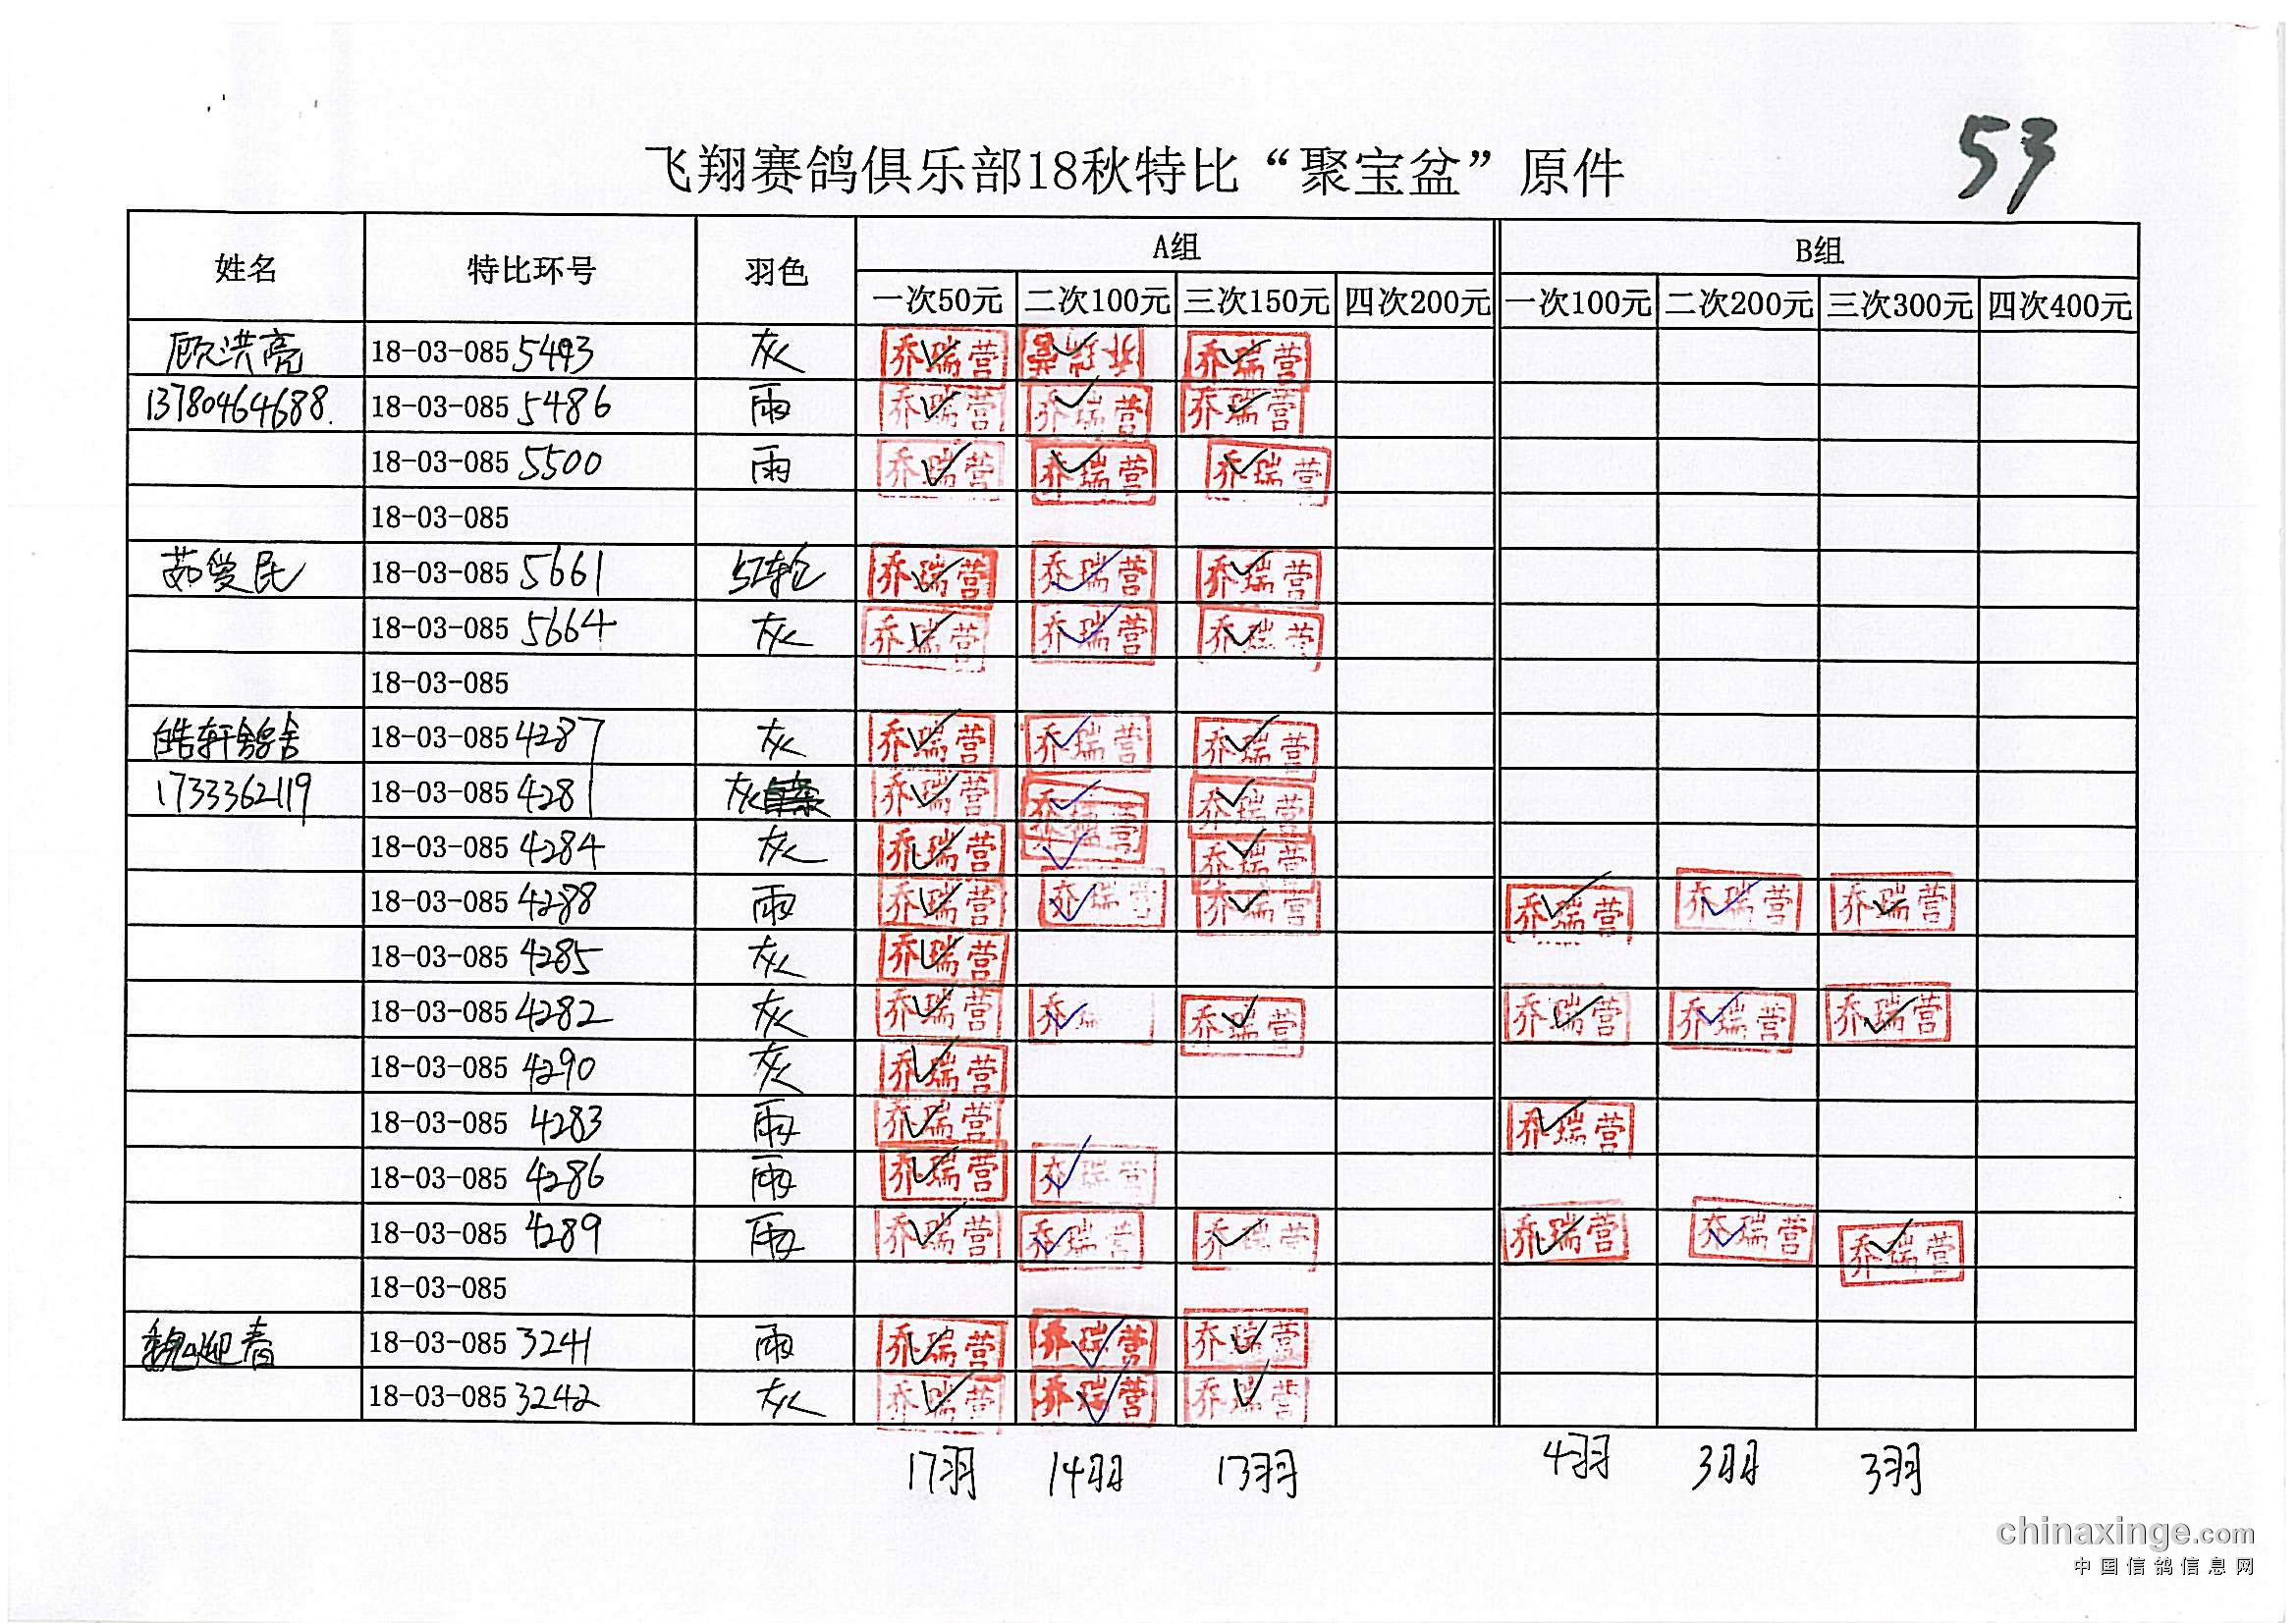 53
飞翔赛鸽俱乐部18秋特比“聚宝盆”原件
姓名 特比环号 羽色 A组 B组
一次50元 二次100元 三次150元 四次200元 一次100元 二次200元 三次300元 四次400元
顾洪亮 18-03-085 5493 灰 乔瑞营 乔瑞营 乔瑞营
13780464688. 18-03-085 5486 雨 乔瑞营 乔瑞营 乔瑞营
18-03-085 5500 雨 乔瑞营 乔瑞营 乔瑞营
18-03-085
茹爱民 18-03-085 5661 红轮 乔瑞营 乔瑞营 乔瑞营
18-03-085 5664 灰 乔瑞营 乔瑞营 乔瑞营
18-03-085
皓轩鸽舍 18-03-085 4287 灰 乔瑞营 乔瑞营 乔瑞营
1733362119 18-03-085 4281 灰 乔瑞营 乔瑞营 乔瑞营
18-03-085 4284 灰 乔瑞营 乔瑞营 乔瑞营
18-03-085 4288 雨 乔瑞营 乔瑞营 乔瑞营 乔瑞营 乔瑞营 乔瑞营
18-03-085 4285 灰 乔瑞营
18-03-085 4282 灰 乔瑞营 乔瑞 乔瑞营 乔瑞营 乔瑞营 乔瑞营
18-03-085 4290 灰 乔瑞营
18-03-085 4283 雨 乔瑞营 乔瑞营
18-03-085 4286 雨 乔瑞营 乔瑞营
18-03-085 4289 雨 乔瑞营 乔瑞营 乔瑞营 乔瑞营 乔瑞营 乔瑞营
18-03-085
魏迎春 18-03-085 3241 雨 乔瑞营 乔瑞营 乔瑞营
18-03-085 3242 灰 乔瑞营 乔瑞营 乔瑞营
17羽 14羽 13羽 4羽 3羽 3羽
chinaxinge.com
中国信鸽信息网